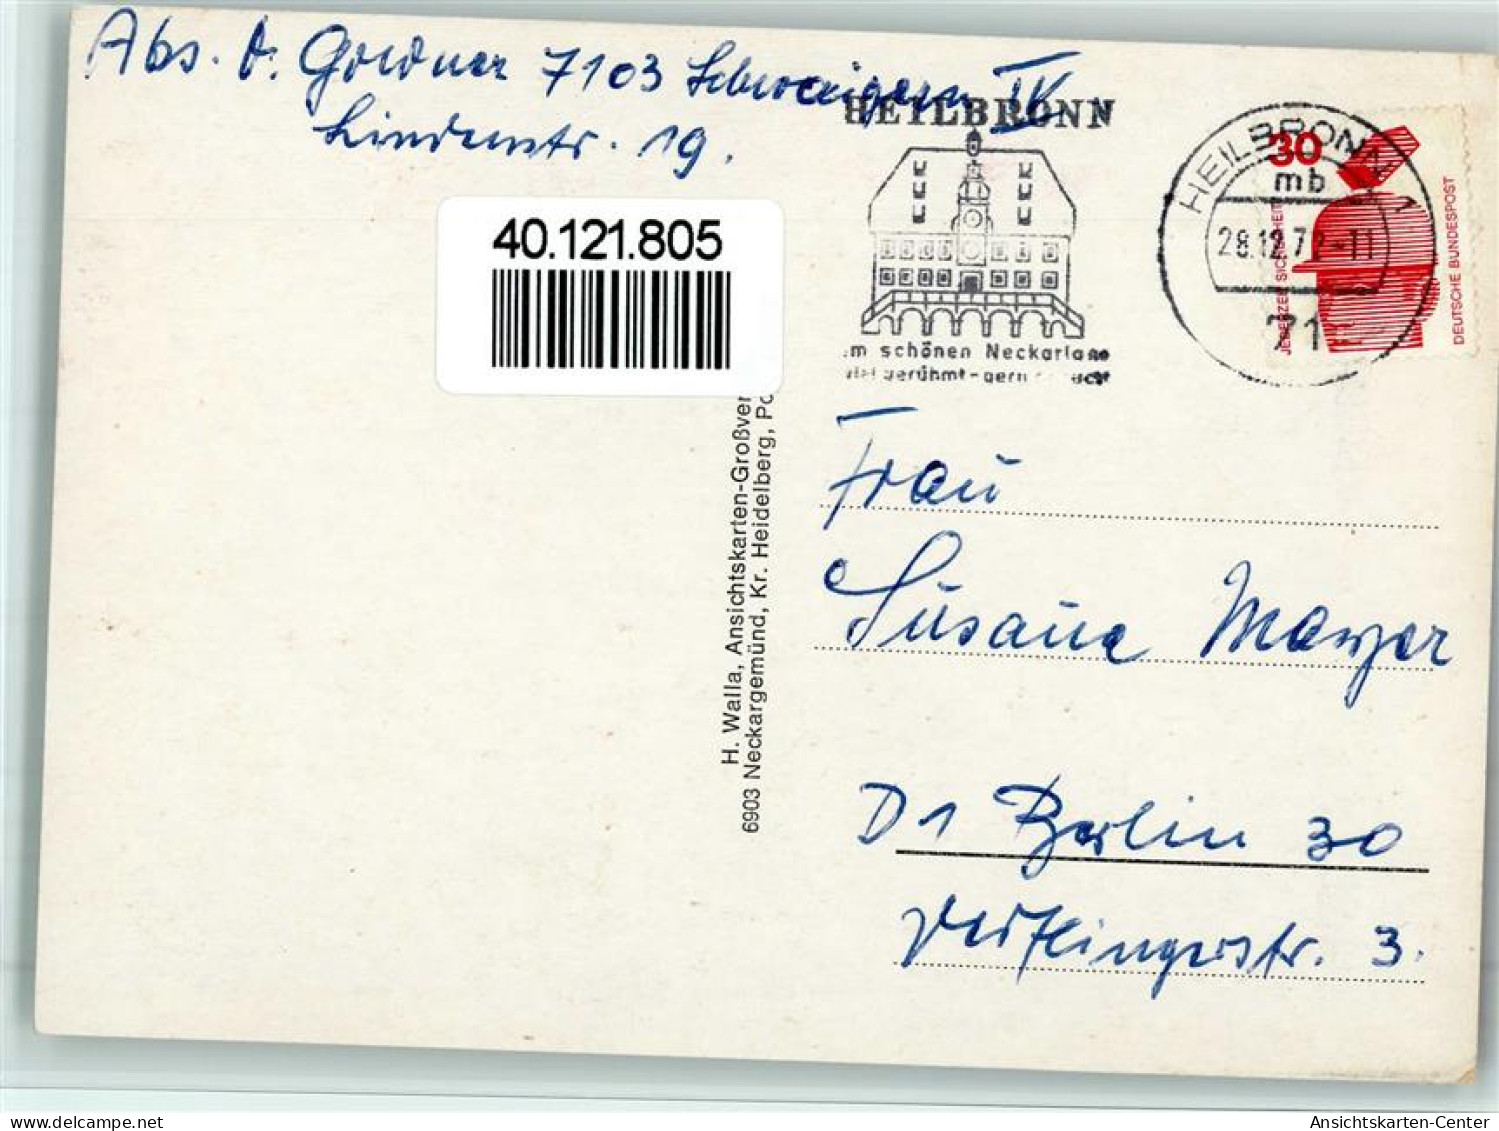 Abs. D. Goldner 7103 Schwaigern IV
Lindenstr. 19.
40.121.805
HEILBRONN
schönen Neckartane
berühmt-gern
HEILBRONN 1
mb
28.12.72-11
71
30
JEDERZEIT SICHERHEIT
DEUTSCHE BUNDESPOST
H. Walla, Ansichtskarten-Großver
6903 Neckargemünd, Kr. Heidelberg, Po
Frau
Susanne Mayer
D1 Berlin 30
str. 3.
delcampe.net
Ansichtskarten-Center